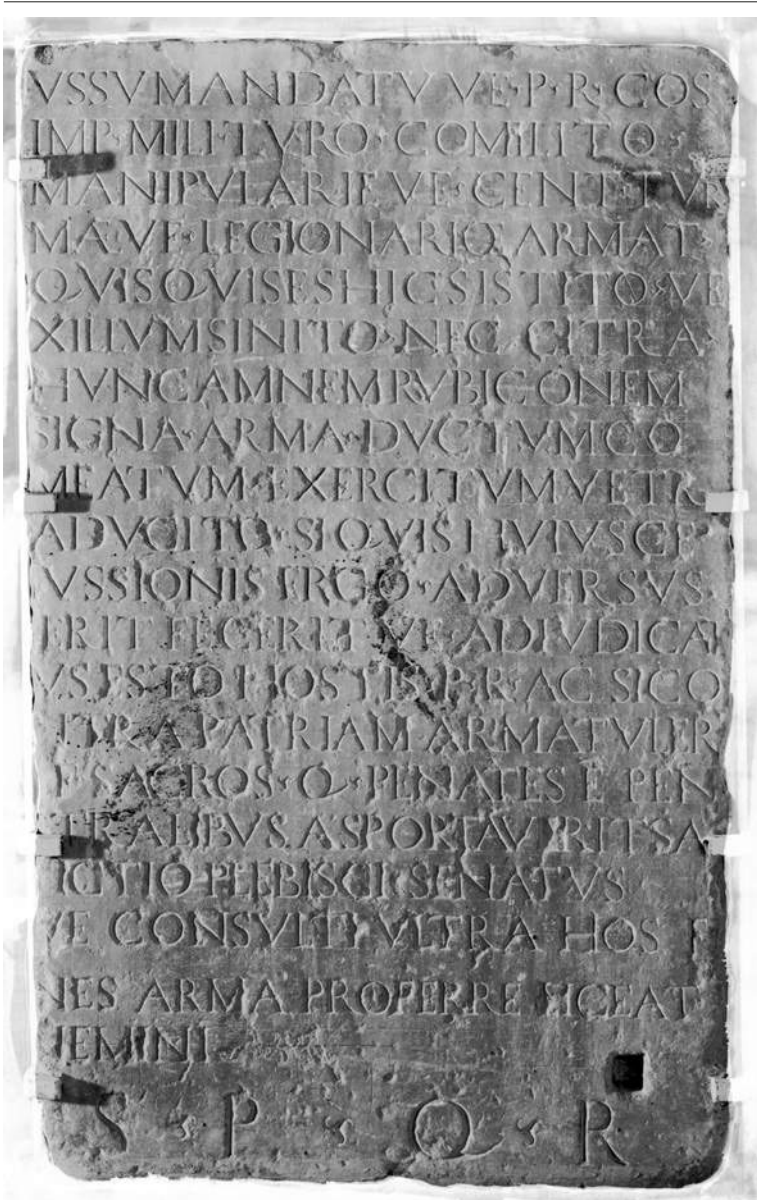 VSSVMANDATVVE·P·R·COS
IMP·MILI·TVRO·COMILITO
MANIPVLARIEVE·CENT·TVR
MÆVE·LEGIONARIO·ARMAT·
QVISQVISESHICSISTITO·VE
XILLVMSINITO·NEC·CITRA·
HVNCAMNEMRVBICONEM
SIGNA·ARMA·DVCTVMCO
MEATVM·EXERCITVMVETR
ADVCITO·SIQVISHVIVSCE
VSSIONIS ERGO·ADVERSVS
IERIT FECERITVE·ADIVDICAT
VS·ESTO HOSTIS·P·R·AC SICO
NTRA PATRIAM ARMATVLER
IT SACROS·Q·PENATES E PEN
ETRALIBVS ASPORTAVERIT·SA
NCITIO·PLEBISCI·SENATVS
VE CONSVLTI VLTRA HOS F
NES ARMA PROFERRE LICEAT
NEMINI
S·P·Q·R